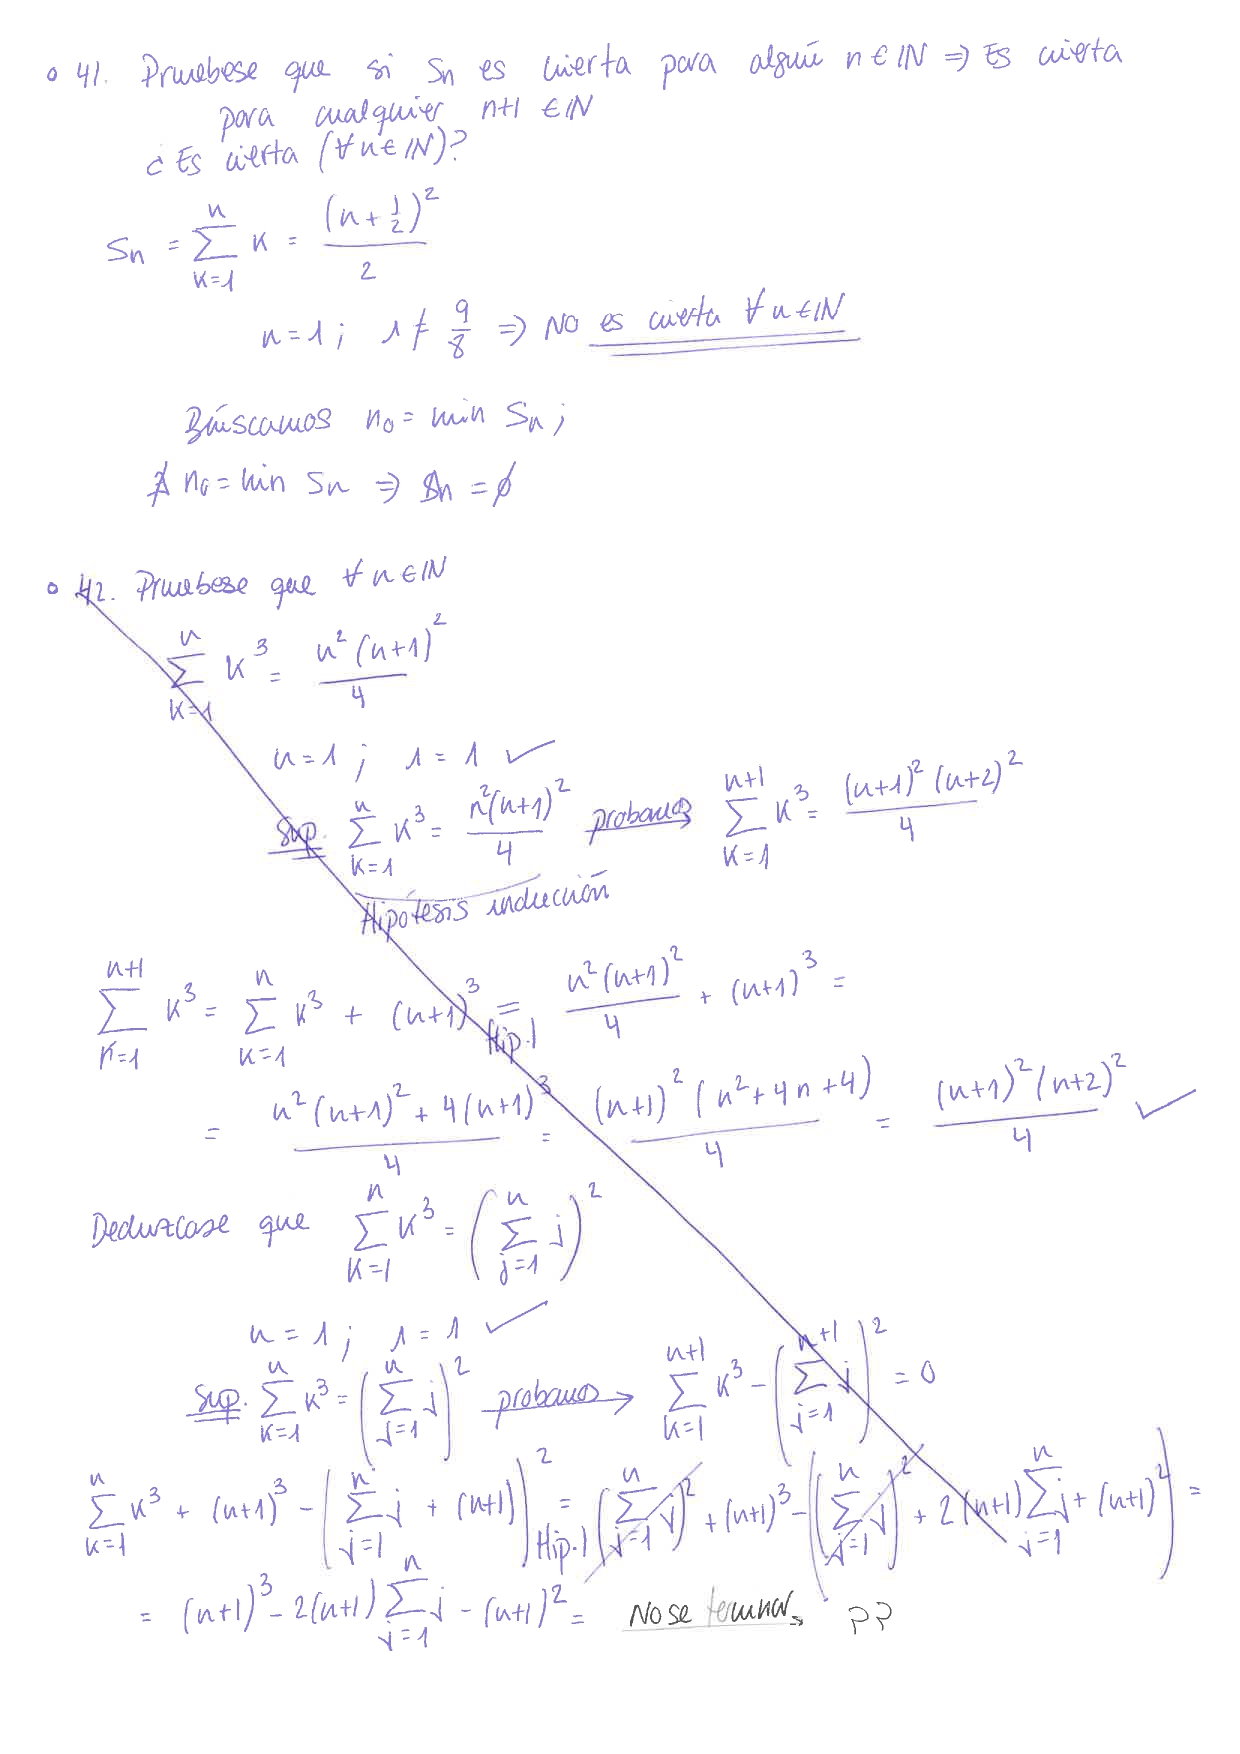 41. Pruebese que si Sn es cierta para algún n ∈ IN ⇒ Es cierta
para cualquier n+1 ∈ IN
¿Es cierta (∀n ∈ IN)?
Sn = ∑_{K=1}^{n} K = (n + 1/2)² / 2
n=1; 1 ≠ 9/8 ⇒ NO es cierta ∀n ∈ IN
Búscamos n₀ = min Sn;
∄ n₀ = min Sn ⇒ Sn = ∅
42. Pruebese que ∀n ∈ IN
∑_{K=1}^{n} K³ = n²(n+1)² / 4
n=1; 1=1 ✓
Sup. ∑_{K=1}^{n} K³ = n²(n+1)² / 4 probamos → ∑_{K=1}^{n+1} K³ = (n+1)²(n+2)² / 4
Hipótesis inducción
∑_{K=1}^{n+1} K³ = ∑_{K=1}^{n} K³ + (n+1)³ =_{Hip.I} n²(n+1)² / 4 + (n+1)³ =
= (n²(n+1)² + 4(n+1)³) / 4 = (n+1)²(n²+4n+4) / 4 = (n+1)²(n+2)² / 4 ✓
Deduzcase que ∑_{K=1}^{n} K³ = (∑_{j=1}^{n} j)²
n=1; 1=1 ✓
Sup. ∑_{K=1}^{n} K³ = (∑_{j=1}^{n} j)² probamos → ∑_{K=1}^{n+1} K³ − (∑_{j=1}^{n+1} j)² = 0
∑_{K=1}^{n} K³ + (n+1)³ − (∑_{j=1}^{n} j + (n+1))² =_{Hip.I} (∑_{j=1}^{n} j)² + (n+1)³ − ((∑_{j=1}^{n} j)² + 2(n+1) ∑_{j=1}^{n} j + (n+1)²) =
= (n+1)³ − 2(n+1) ∑_{j=1}^{n} j − (n+1)² = No se terminar. ??